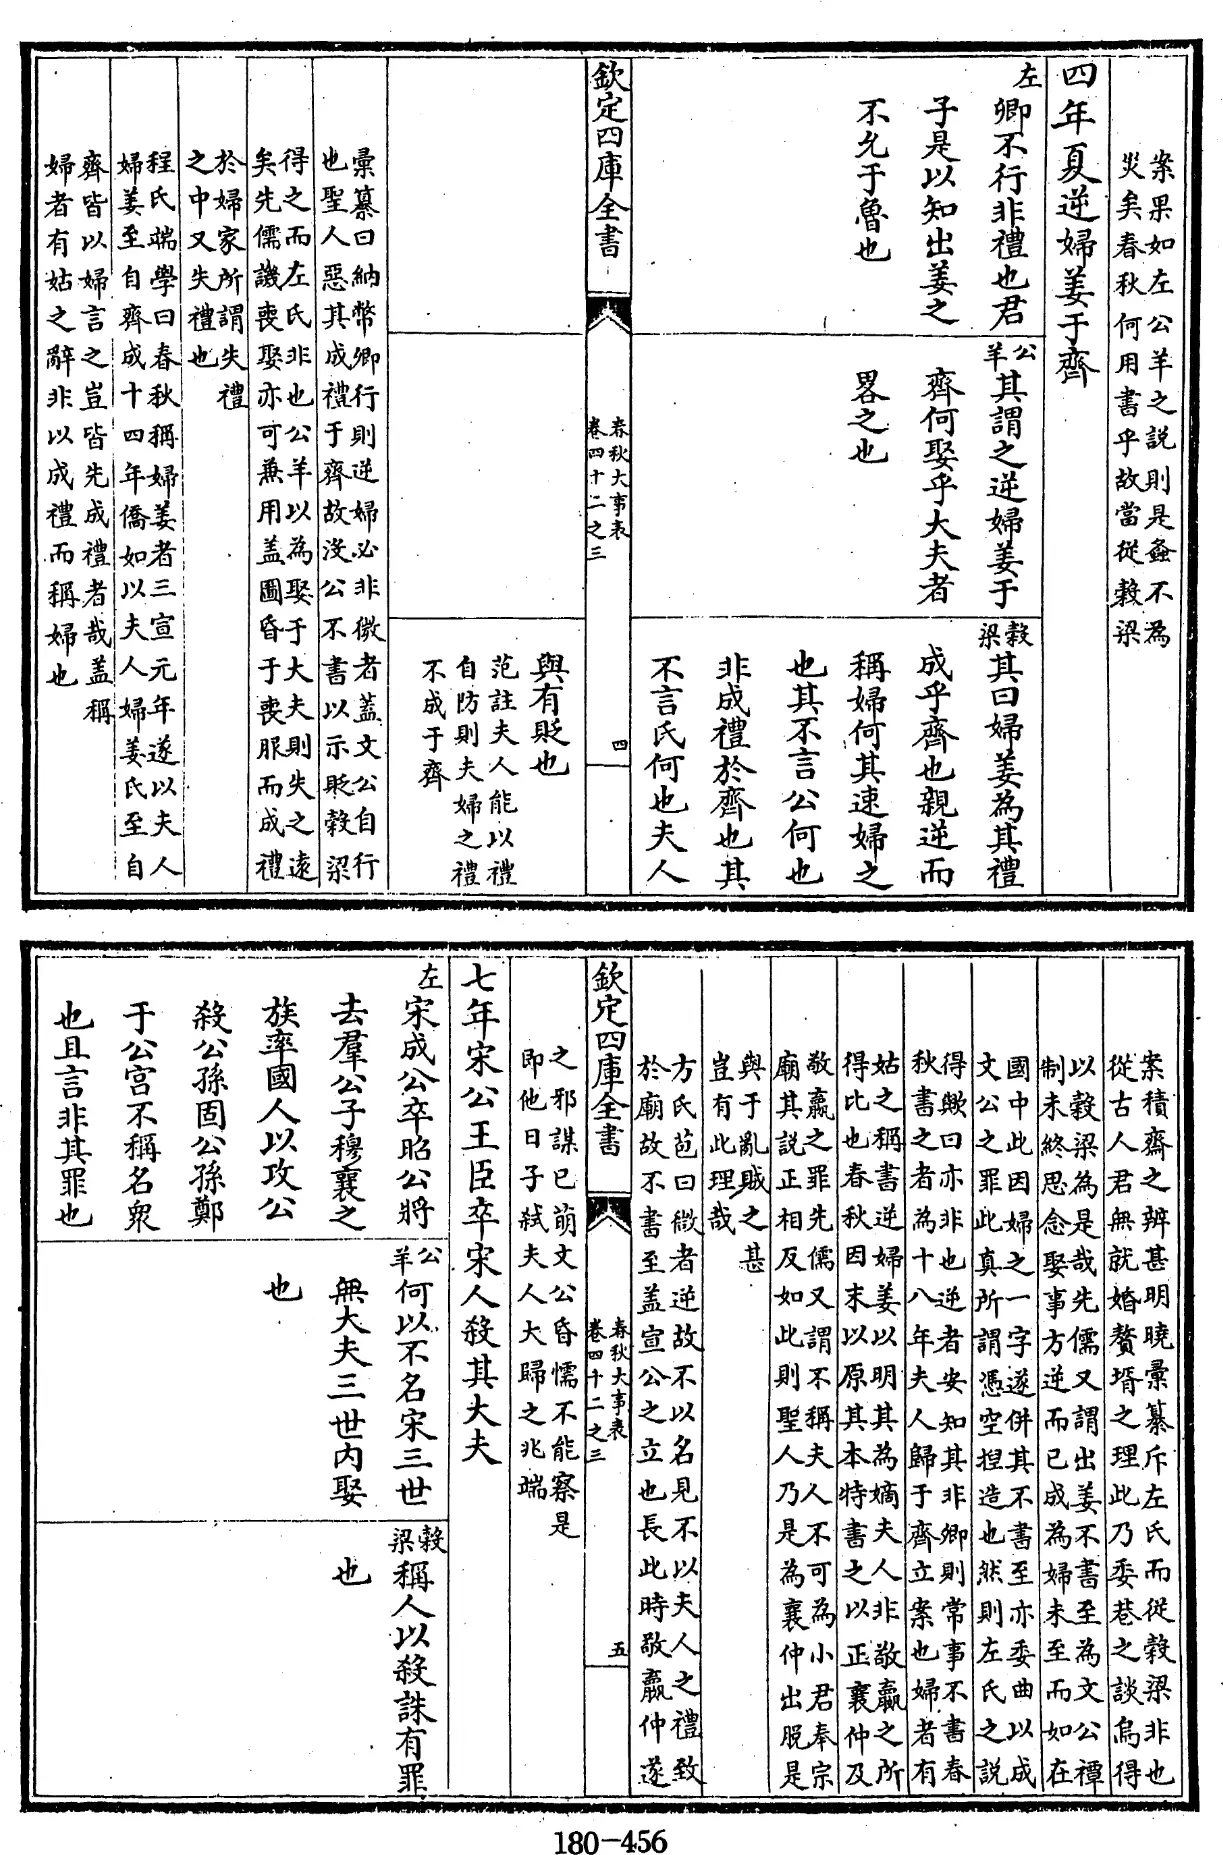 案果如左公羊之説則是螽不為
災矣春秋何用書乎故當從榖梁
四年夏逆婦姜于齊
左
卿不行非禮也君
子是以知出姜之
不允于魯也
公羊
其謂之逆婦姜于
齊何娶乎大夫者
畧之也
榖梁
其曰婦姜為其禮
成乎齊也親逆而
稱婦何其速婦之
也其不言公何也
非成禮於齊也其
不言氏何也夫人
欽定四庫全書
春秋大事表
卷四十二之三
四
與有貶也
范註夫人能以禮
自防則夫婦之禮
不成于齊
彙纂曰納幣卿行則逆婦必非微者蓋文公自行
也聖人惡其成禮于齊故沒公不書以示貶榖梁
得之而左氏非也公羊以為娶于大夫則失之遠
矣先儒譏喪娶亦可兼用蓋圖昏于喪服而成禮
於婦家所謂失禮
之中又失禮也
程氏端學曰春秋稱婦姜者三宣元年遂以夫人
婦姜至自齊成十四年僑如以夫人婦姜氏至自
齊皆以婦言之豈皆先成禮者哉蓋稱
婦者有姑之辭非以成禮而稱婦也
案積齋之辨甚明曉彙纂斥左氏而從榖梁非也
從古人君無就婚贅壻之理此乃委巷之談烏得
以榖梁為是哉先儒又謂出姜不書至為文公禫
制未終思念娶事方逆而已成為婦未至而如在
國中此因婦之一字遂併其不書至亦委曲以成
文公之罪此真所謂憑空揑造也然則左氏之説
得歟曰亦非也逆者安知其非卿則常事不書春
秋書之者為十八年夫人歸于齊立案也婦者有
姑之稱書逆婦姜以明其為嫡夫人非敬嬴之所
得比也春秋因末以原其本特書之以正襄仲及
敬嬴之罪先儒又謂不稱夫人不可為小君奉宗
廟其説正相反如此則聖人乃是為襄仲出脱是
與于亂賊之甚
豈有此理哉
方氏苞曰微者逆故不以名見不以夫人之禮致
於廟故不書至蓋宣公之立也長此時敬嬴仲遂
欽定四庫全書
春秋大事表
卷四十二之三
五
之邪謀已萌文公昏懦不能察是
即他日子弑夫人大歸之兆端
七年宋公王臣卒宋人殺其大夫
左
宋成公卒昭公將
去羣公子穆襄之
族率國人以攻公
殺公孫固公孫鄭
于公宮不稱名衆
也且言非其罪也
公羊
何以不名宋三世
無大夫三世内娶
也
榖梁
稱人以殺誅有罪
也
180-456